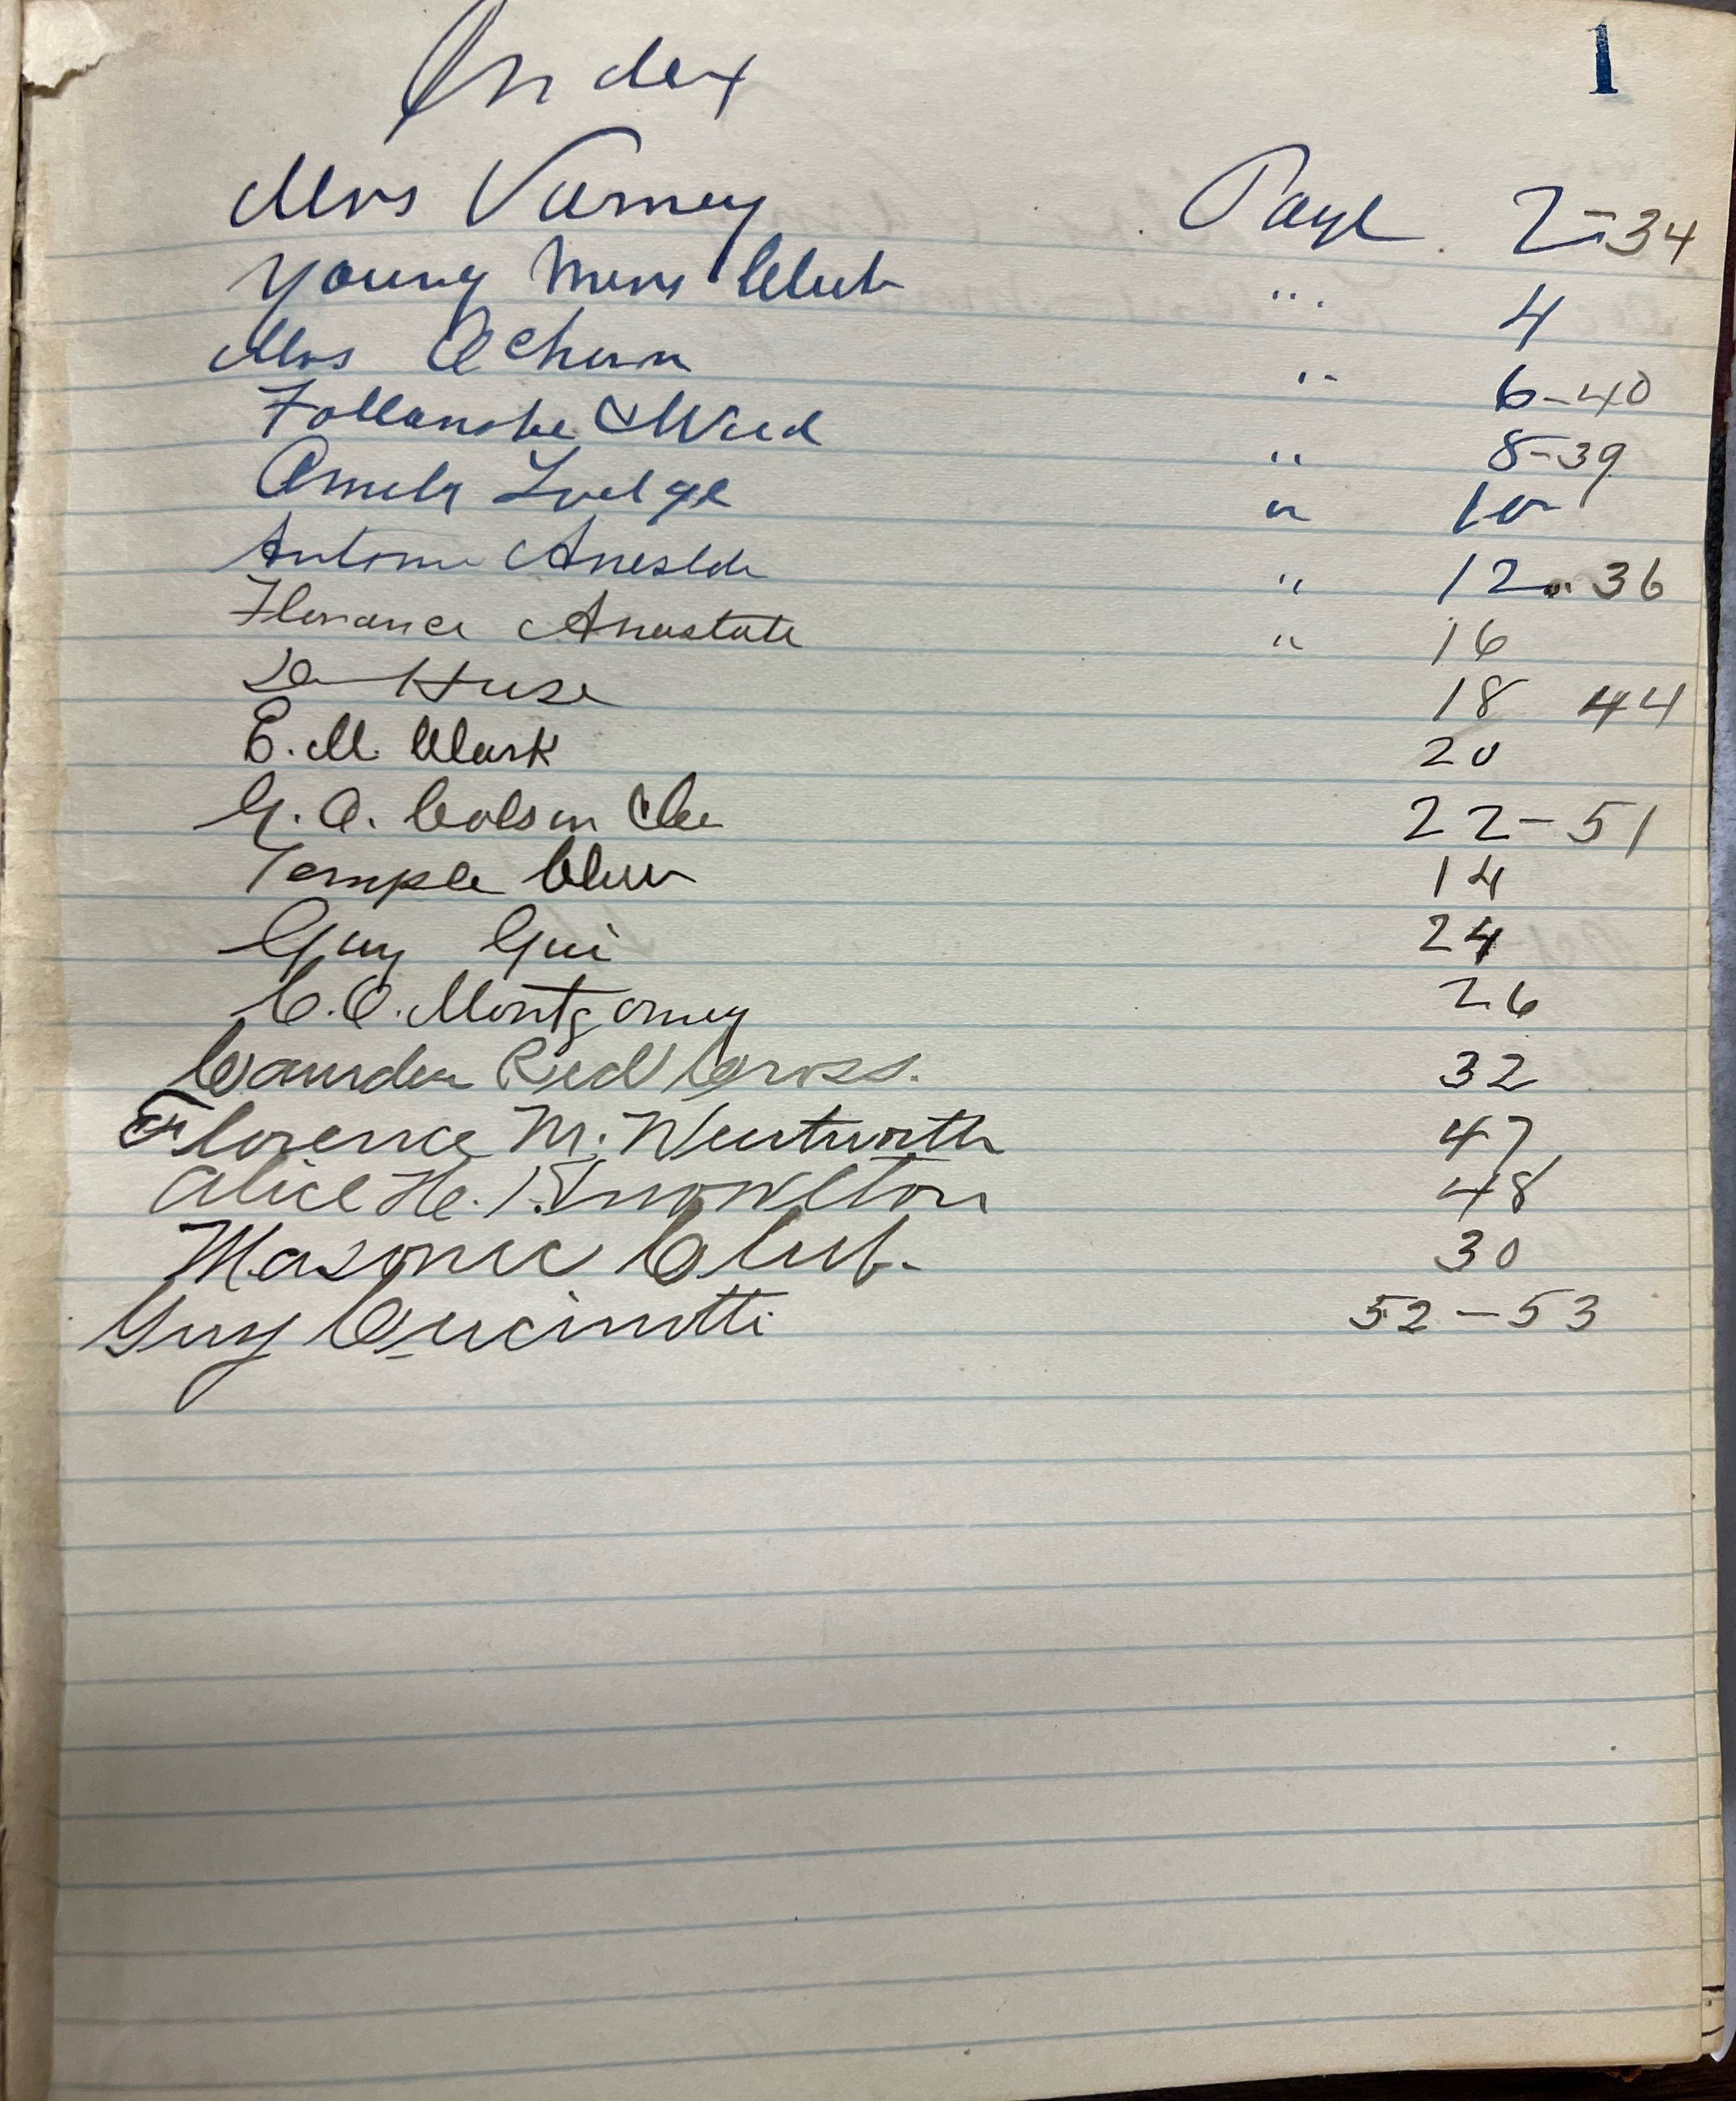 1
Index
Mrs Varney Page 2-34
Young Mens Club " 4
Mrs Achorn " 6-40
Follansbe & Wood " 8-39
Amela Lodge " 10
Antonu " 12 - 36
Florance Anastate " 16
Huse 18 44
E. M. Clark 20
G. A. Colson 22-51
Temple Club 14
Guy Gui 24
C. C. Montgomey 26
Camden Red Cross. 32
Florence M. Wentworth 47
Alice H. Knowlton 48
Masonic Club. 30
Guy Cucinotti 52-53